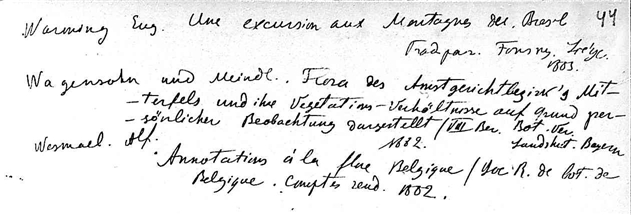 Warming Eug. Une excursion aux Montagnes du Bresil 44
Trad par. Fonsny. Liége.
1883.
Wagensohn und Meindl. Flora des Amtsgerichtbezirk's Mit-
-terfels und ihre Vegetations-Verhältnisse auf Grund per-
-sönlicher Beobachtung dargestellt / VIII Ber. Bot. Ver.
Wesmael. Alf. 1882. Landshut. Bayern
Annotations à la flore Belgique / Soc. R. de bot. de
Belgique. Comptes rend. 1882.